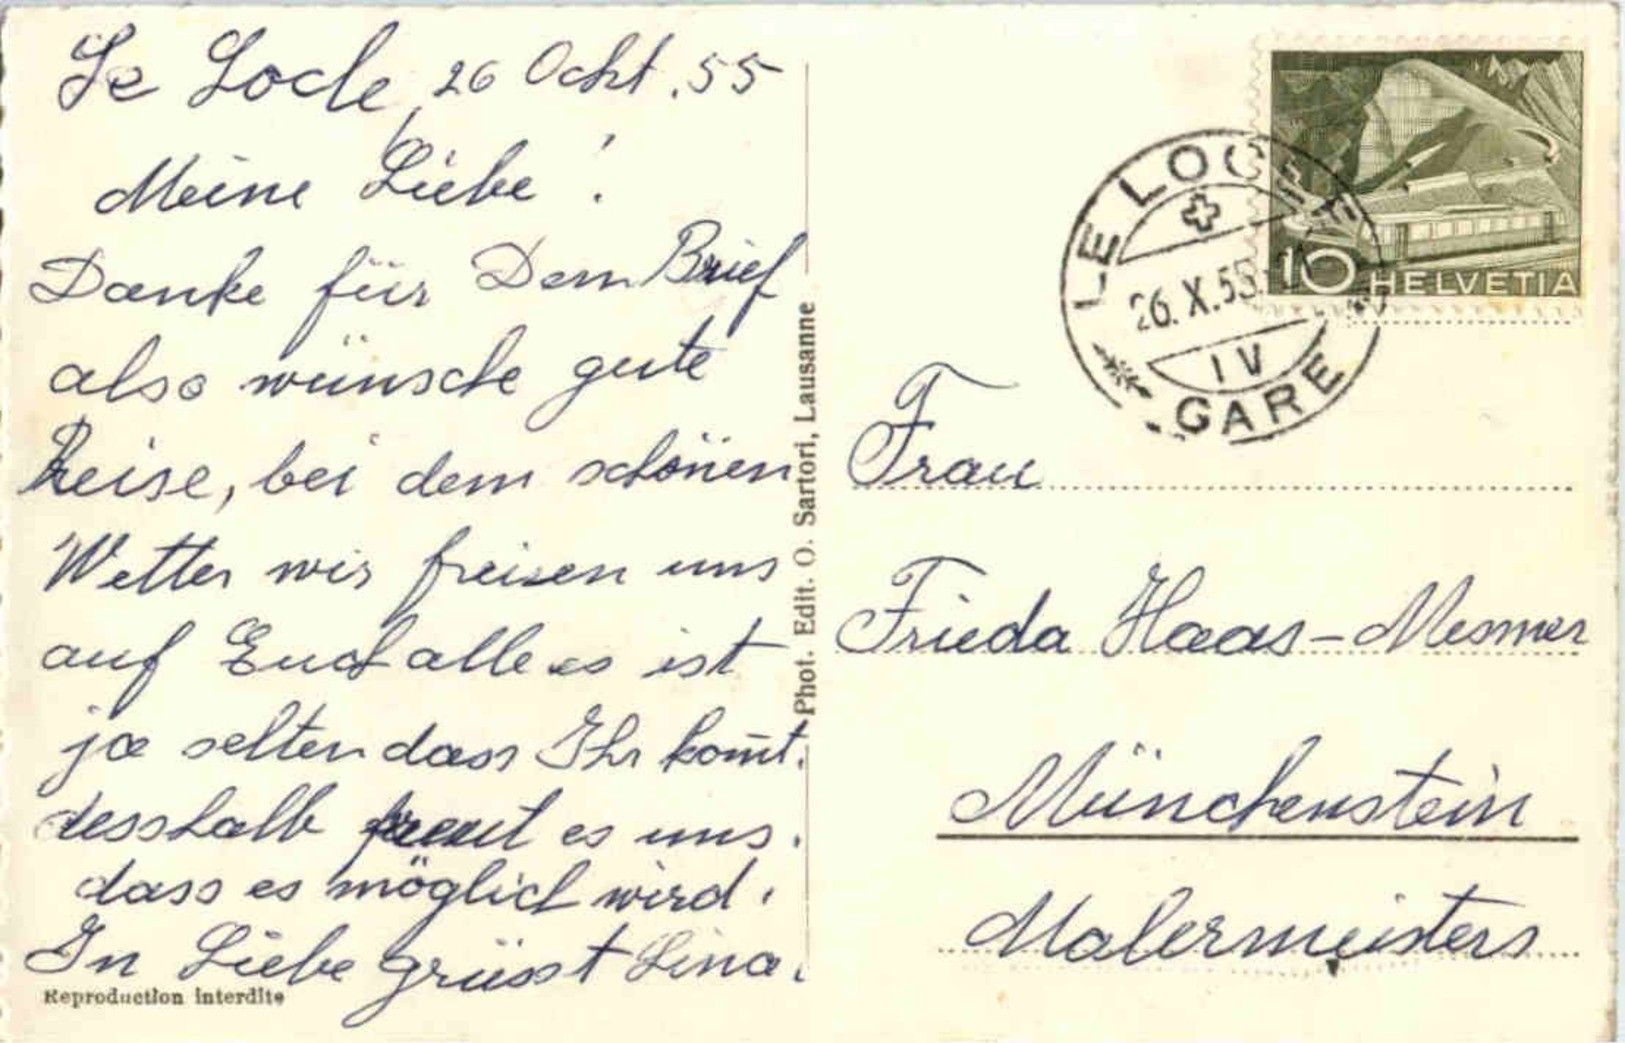 Le Locle, 26 Ocht. 55
Meine Liebe!
Danke für Dein Brief
also wünsche gute
Reise, bei dem schönen
Wetter wir freuen uns
auf Euch alle es ist
ja selten dass Ihr kom̄t.
desshalb freut es uns.
dass es möglich wird.
In Liebe grüsst Lina.
Reproduction interdite
Phot. Edit. O. Sartori, Lausanne
LE LOCLE
26. X. 55
IV
GARE
10 HELVETIA
Frau
Frieda Haas-Mesmer
Münchenstein
Malermeisters